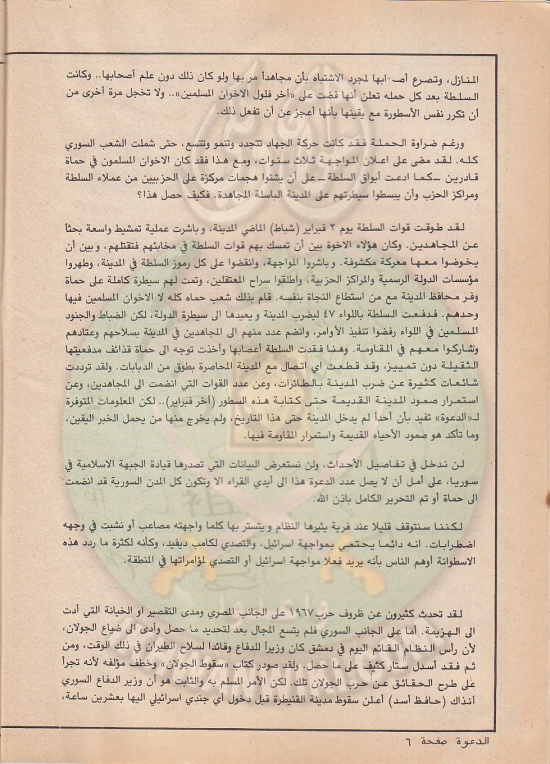 المنازل، وتصرع أصحابها لمجرد الاشتباه بأن مجاهداً مر بها ولو كان ذلك دون علم أصحابها.. وكانت
السلطة بعد كل حمله تعلن أنها قضت على «آخر فلول الاخوان المسلمين».. ولا تخجل مرة أخرى من
أن تكرر نفس الأسطورة مع يقينها بأنها أعجز عن أن تفعل ذلك.
ورغم ضراوة الحملة فقد كانت حركة الجهاد تتجدد وتنمو وتتسع، حتى شملت الشعب السوري
كله. لقد مضى على اعلان المواجهة ثلاث سنوات، ومع هذا فقد كان الاخوان المسلمون في حماة
قادرين ــ كما ادعت أبواق السلطة ــ على أن يشنوا هجمات مركزة على الحزبيين من عملاء السلطة
ومراكز الحزب وأن يبسطوا سيطرتهم على المدينة الباسلة المجاهدة. فكيف حصل هذا؟
لقد طوقت قوات السلطة يوم ٢ فبراير (شباط) الماضي المدينة، وباشرت عملية تمشيط واسعة بحثاً
عن المجاهدين. وكان هؤلاء الاخوة بين أن تمسك بهم قوات السلطة في مخابئهم فتقتلهم، وبين أن
يخوضوا معها معركة مكشوفة. وباشروا المواجهة، وانقضوا على كل رموز السلطة في المدينة، وطهروا
مؤسسات الدولة الرسمية والمراكز الحزبية، واطلقوا سراح المعتقلين، وتمت لهم سيطرة كاملة على حماة
وفر محافظ المدينة مع من استطاع النجاة بنفسه. قام بذلك شعب حماه كله لا الاخوان المسلمين فيها
وحدهم. فدفعت السلطة باللواء ٤٧ ليضرب المدينة ويعيدها الى سيطرة الدولة، لكن الضباط والجنود
المسلمين في اللواء رفضوا تنفيذ الأوامر، وانضم عدد منهم الى المجاهدين في المدينة بسلاحهم وعتادهم
وشاركوا معهم في المقاومة. وهنا فقدت السلطة أعصابها وأخذت توجه الى حماة قذائف مدفعيتها
الثقيلة دون تمييز، وقد قطعت اي اتصال مع المدينة المحاصرة بطوق من الدبابات. ولقد ترددت
شائعات كثيرة عن ضرب المدينة بالطائرات، وعن عدد القوات التي انضمت الى المجاهدين، وعن
استمرار صمود المدينة القديمة حتى كتابة هذه السطور (آخر فبراير).. لكن المعلومات المتوفرة
لـ«الدعوة» تفيد بأن أحداً لم يدخل المدينة حتى هذا التاريخ، ولم يخرج منها من يحمل الخبر اليقين،
وما تأكد هو صمود الأحياء القديمة واستمرار المقاومة فيها.
لن ندخل في تفاصيل الأحداث، ولن نستعرض البيانات التي تصدرها قيادة الجبهة الاسلامية في
سوريا، على أمل أن لا يصل عدد الدعوة هذا الى أيدي القراء الا وتكون كل المدن السورية قد انضمت
الى حماة أو تم التحرير الكامل بإذن الله.
لكننا سنتوقف قليلا عند فرية يثيرها النظام ويتستر بها كلما واجهته مصاعب أو نشبت في وجهه
اضطرابات. انه دائما يحتمي بمواجهة اسرائيل، والتصدي لكامب ديفيد، وكأنه لكثرة ما ردد هذه
الاسطوانة أوهم الناس بأنه يريد فعلا مواجهة اسرائيل أو التصدي لمؤامراتها في المنطقة.
لقد تحدث كثيرون عن ظروف حرب ١٩٦٧ على الجانب المصري ومدى التقصير أو الخيانة التي أدت
الى الهزيمة. أما على الجانب السوري فلم يتسع المجال بعد لتحديد ما حصل وأدى الى ضياع الجولان،
لأن رأس النظام القائم اليوم في دمشق كان وزيراً للدفاع وقائدا لسلاح الطيران في ذلك الوقت، ومن
ثم فقد أسدل ستار كثيف على ما حصل. ولقد صودر كتاب «سقوط الجولان» وخطف مؤلفه لأنه تجرأ
على طرح الحقائق عن حرب الجولان تلك. لكن الأمر المسلم به والثابت هو أن وزير الدفاع السوري
آنذاك (حافظ أسد) أعلن سقوط مدينة القنيطرة قبل دخول أي جندي اسرائيلي اليها بعشرين ساعة،
الدعوة صفحة ٦